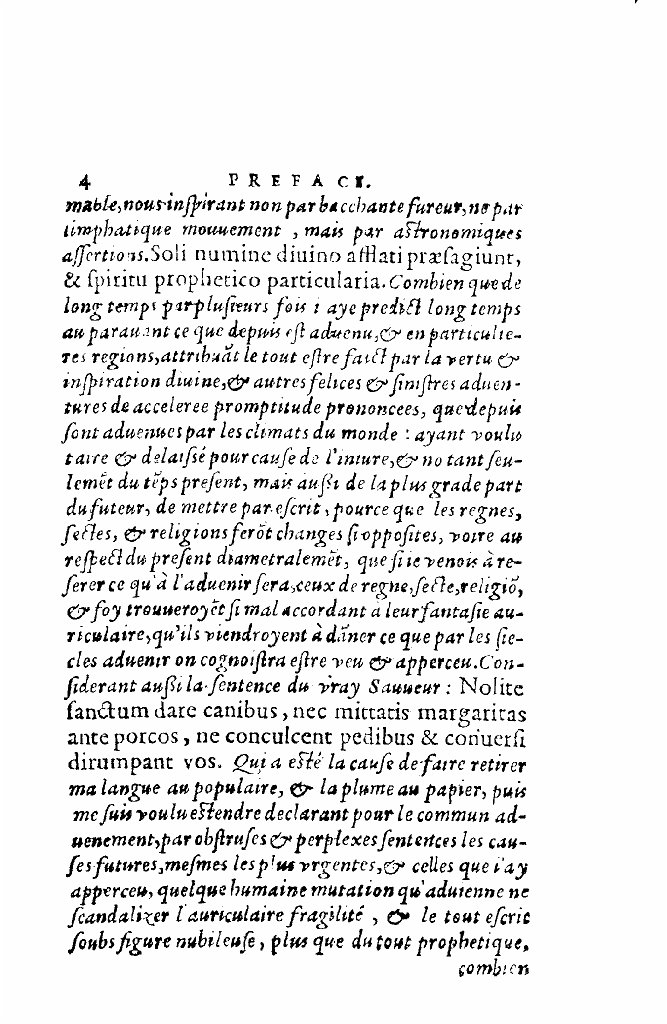 4 PREFACE.
mable, nous inſpirant non par bacchante fureur, ne par
limphatique mouuement, mais par aſtronomiques
aſſertions. Soli numine diuino afflati præſagiunt,
& ſpiritu prophetico particularia. Combien que de
long temps par pluſieurs fois i aye predict long temps
au parauant ce que depuis eſt aduenu, & en particulie-
res regions, attribuãt le tout eſtre faict par la vertu &
inſpiration diuine, & autres felices & ſiniſtres aduen-
tures de acceleree promptitude prononcees, que depuis
ſont aduenues par les climats du monde : ayant voulu
taire & delaiſſé pour cauſe de l'iniure, & no tant ſeu-
lemẽt du tẽps preſent, mais auſſi de la plus grade part
du futeur, de mettre par eſcrit, pource que les regnes,
ſectes, & religions ferõt changes ſi oppoſites, voire au
reſpect du preſent diametralemẽt, que ſi ie venois à re-
ſerer ce qu'à l'aduenir ſera, ceux de regne, ſecte, religiõ,
& foy trouueroyẽt ſi mal accordant a leur fantaſie au-
riculaire, qu'ils viendroyent à dãner ce que par les ſie-
cles aduenir on cognoiſtra eſtre veu & apperceu. Con-
ſiderant auſſi la ſentence du vray Sauueur : Nolite
ſanctum dare canibus, nec mittatis margaritas
ante porcos, ne conculcent pedibus & conuerſi
dirumpant vos. Qui a eſté la cauſe de faire retirer
ma langue au populaire, & la plume au papier, puis
me ſuis voulu eſtendre declarant pour le commun ad-
uenement, par obſtruſes & perplexes ſentences les cau-
ſes futures, meſmes les plus vrgentes, & celles que i'ay
apperceu, quelque humaine mutation qu'aduienne ne
ſcandalizer l'auriculaire fragilité, & le tout eſcrit
ſoubs figure nubileuſe, plus que du tout prophetique,
combien